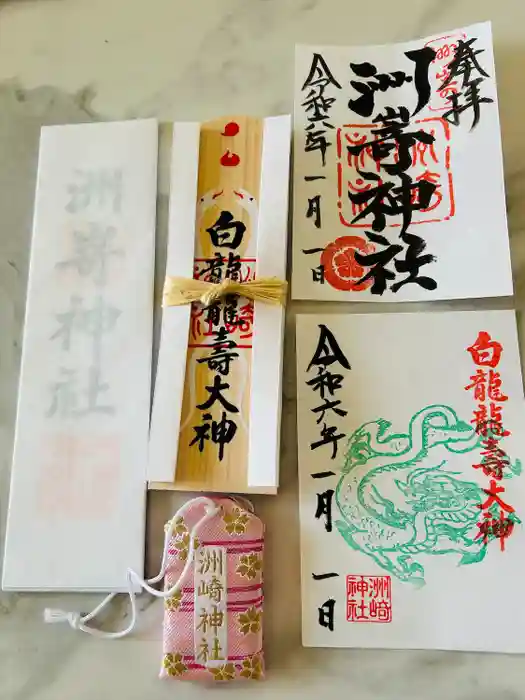 洲崎神社
白龍龍壽大神
洲崎神社
奉拝
洲嵜神社
令和六年一月一日
白龍龍壽大神
令和六年一月一日
洲崎
神社